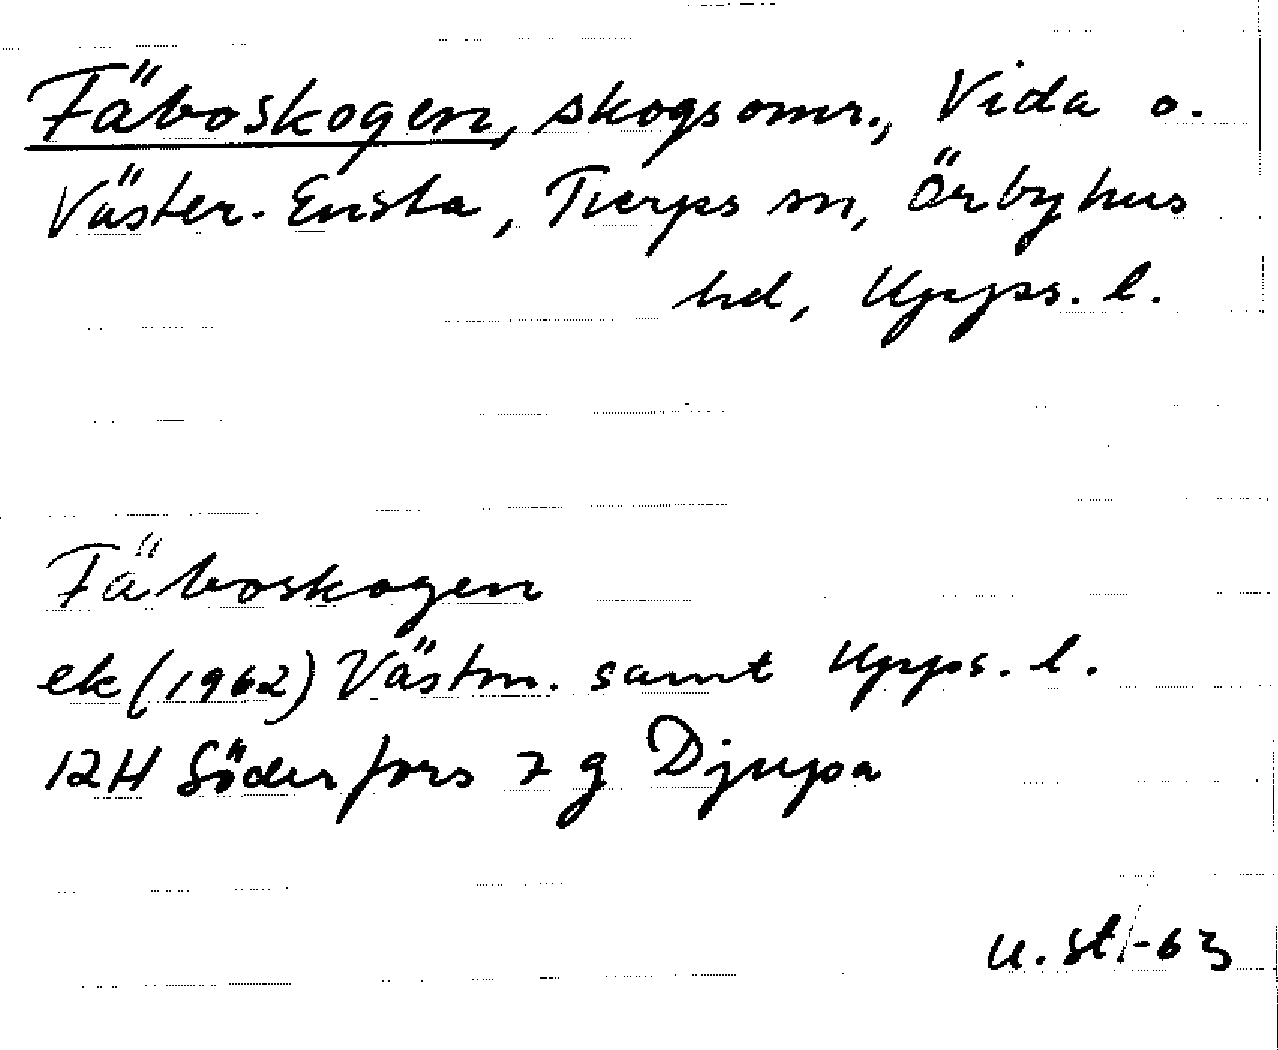 Fäboskogen, skogsomr., Vida o.
Väster-Ensta, Tierps sn, Örbyhus
hd, Upps. l.
Fäboskogen
ek (1962) Västm. samt Upps. l.
12H Söderfors 7 g Djupa
U. St/-63